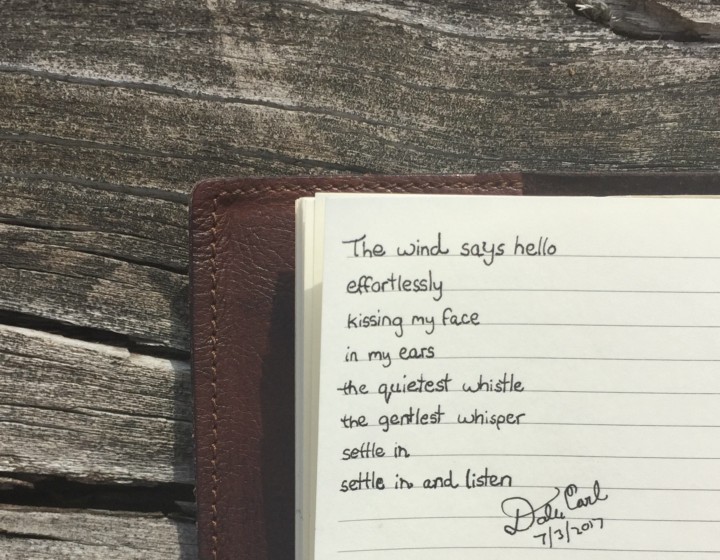 The wind says hello
effortlessly
kissing my face
in my ears
the quietest whistle
the gentlest whisper
settle in
settle in and listen
Carl
7/3/2017